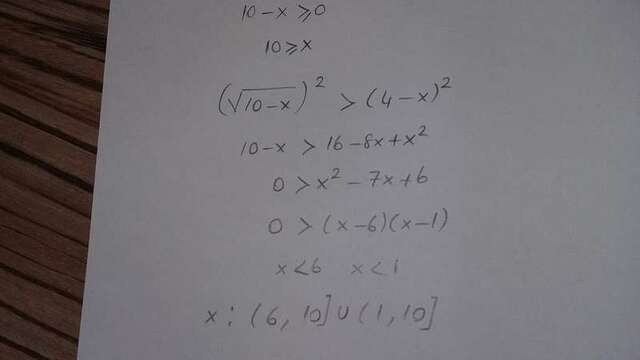 10-x ≥0
10≥x
(√10-x)² >(4-x)²
10-x >16-8x+x²
0 >x²-7x+6
0 >(x-6)(x-1)
x<6 x<1
x: (6, 10]∪(1, 10]